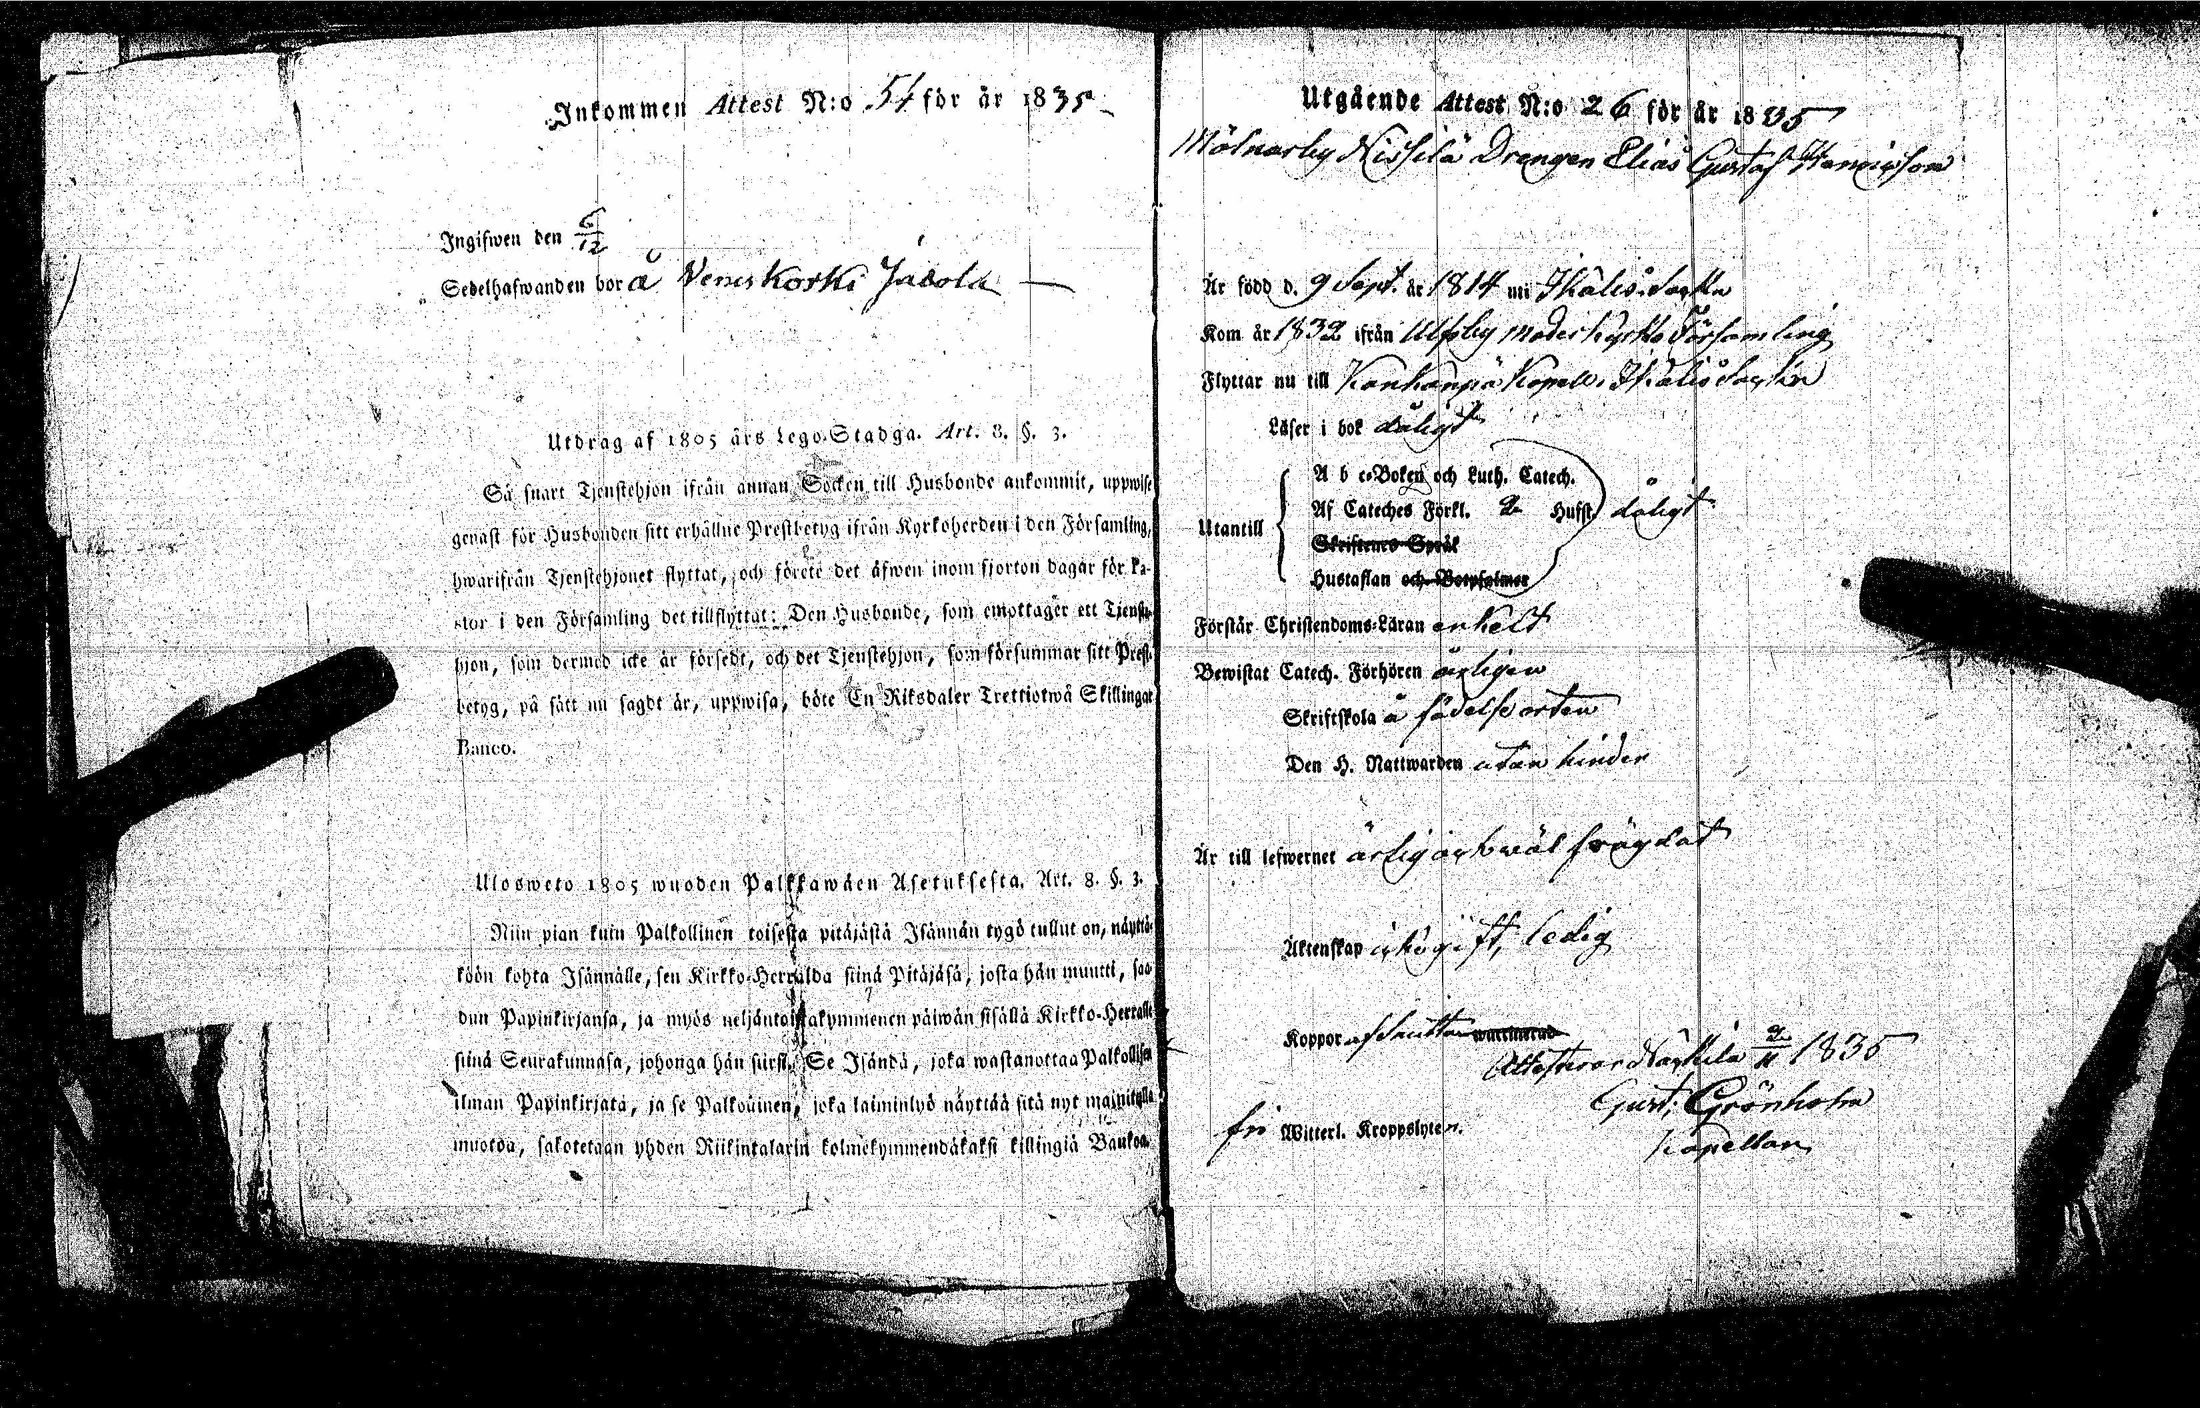 Inkommen Attest N:o 54 för år 1835
Ingifwen den 6/12
Sedelhafwanden bor å Veneskoski Jabola
Utdrag af 1805 års Lego-Stadga. Art. 8. §. 3.
Så snart Tjenstehjon ifrån annan Socken till Husbonde ankommit, uppwise
genast för Husbonden sitt erhållne Prestbetyg ifrån Kyrkoherden i den Församling,
hwarifrån Tjenstehjonet flyttat, och förete det äfwen inom fjorton dagar för Pa-
stor i den Församling det tillflyttat: Den Husbonde, som emottager ett Tjenste-
hjon, som dermed icke är försedt, och det Tjenstehjon, som försummar sitt Prest-
betyg, på sätt nu sagdt är, uppwisa, böte En Riksdaler Trettiotwå Skillingar
Banco.
Ulosweto 1805 wuoden Palkkawäen Asetuksesta. Art. 8. §. 3.
Niin pian kuin Palkollinen toisesta pitäjästä Isännän tygö tullut on, näyttä-
köön kohta Isännälle, sen Kirkko-Herralda siinä Pitäjäsä, josta hän muutti, saa-
dun Papinkirjansa, ja myös neljäntoistakymmenen päiwän sisällä Kirkko-Herralle
siinä Seurakunnasa, johonga hän siirsi. Se Isändä, joka wastanottaa Palkollisen
ilman Papinkirjata, ja se Palkollinen, joka laiminlyö näyttää sitä nyt mainitulla
muotoa, sakotetaan yhden Riikintalarin kolmekymmendäkaksi killingiä Bankoa.
Utgående Attest N:o 26 för år 1835
Mölnarby Nissilä Drengen Elias Gustaf Henricsson
Är född d. 9 Sept. år 1814 uti Ikalis Sockn
Kom år 1832 ifrån Ulfsby moderkyrko Församling
Flyttar nu till Kankanpä Kapell i Ikalis Sockn
Läser i bok dåligt
Utantill
A b c-Boken och Luth. Catech.
Af Cateches Förkl. 2 Hufst. dåligt
Skriftenes Språk
Hustaflan och Botpsalmer
Förstår Christendoms-Läran enkelt
Bewistat Catech. Förhören årligen
Skriftskola å födelseorten
Den H. Nattwarden utan hinder
Är till lefwernet ärlig och wäl frägdat
Äktenskap ogift, ledig
Koppor afslutta
Attesterar Nackila 2/11 1835
Gust: Grönholm
Kapellan
fri Witterl. Kroppslyten.